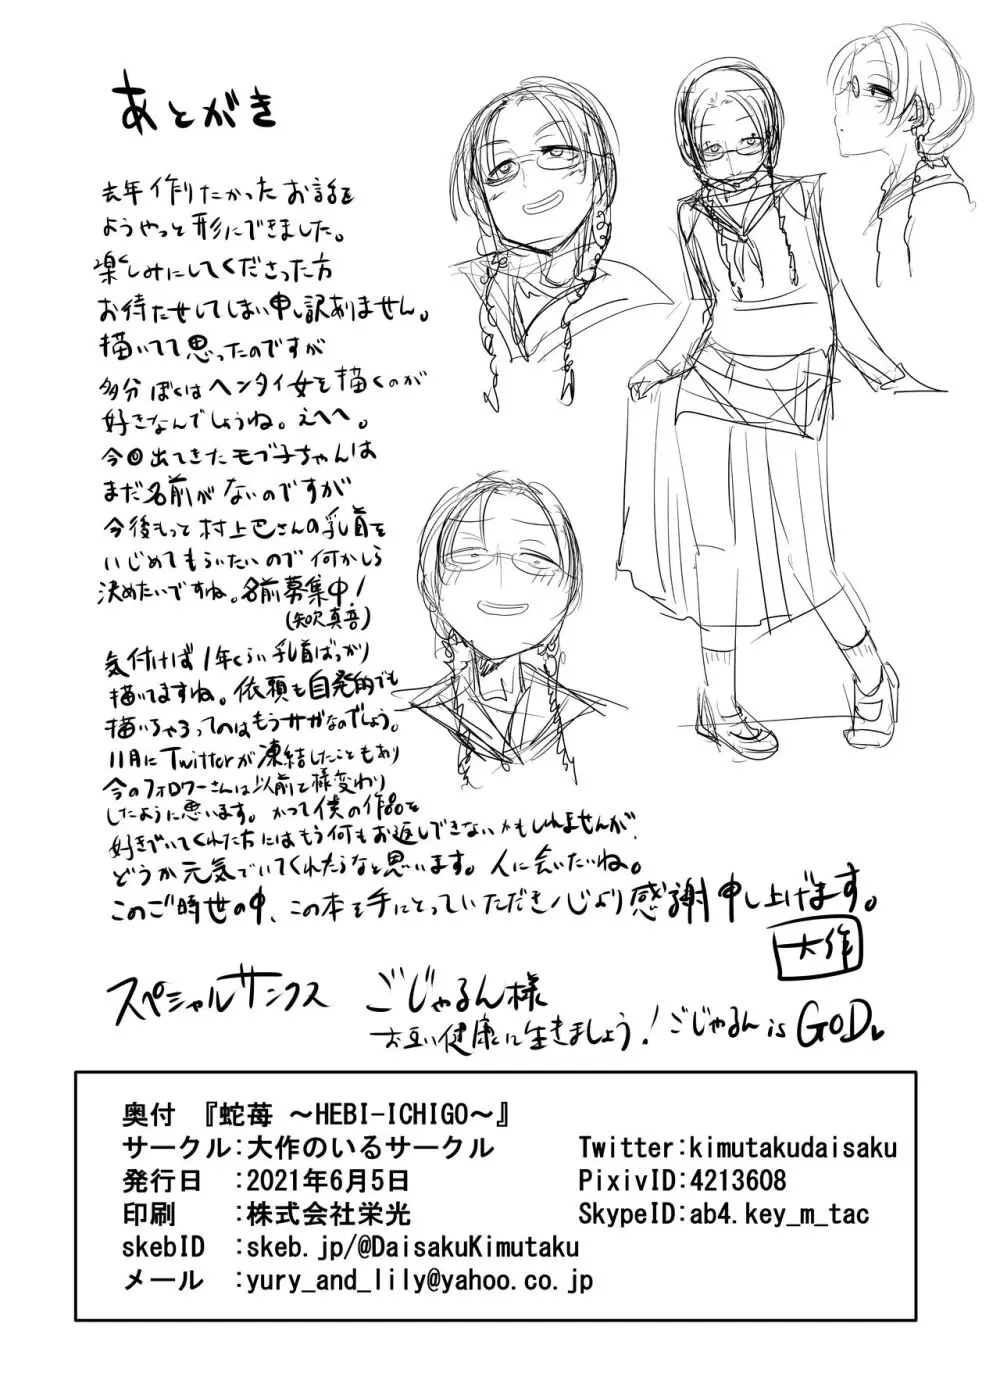 あとがき
去年作りたかったお話を
ようやっと形にできました。
楽しみにしてくださった方
お待たせしてしまい申し訳ありません。
描いてて思ったのですが
多分ぼくはヘンタイ女を描くのが
好きなんでしょうね。えへへ。
今回出てきたモブ子ちゃんは
まだ名前がないのですが
今後もって村上巴さんの乳首を
いじめてもらいたいので何かしら
決めたいですね。名前募集中!
気付けば1年くらい乳首ばっかり
描いてますね。依頼も自発的でも
描いちゃうってのはもうサガなのでしょう。
11月にTwitterが凍結したこともあり
今のフォロワーさんは以前と様変わり
したように思います。かつて僕の作品を
好きでいてくれた方にはもう何もお返しできないかもしれませんが、
どうか元気でいてくれたらなと思います。人に会いたいね。
このご時世の中、この本を手にとっていただき心より感謝申し上げます。
大作
スペシャルサンクス ごじゃるん様
お互い健康に生きましょう!ごじゃるん is GOD♥
奥付 『蛇苺 ～HEBI-ICHIGO～』
サークル:大作のいるサークル Twitter:kimutakudaisaku
発行日 :2021年6月5日 PixivID:4213608
印刷 :株式会社栄光 SkypeID:ab4.key_m_tac
skebID :skeb.jp/@DaisakuKimutaku
メール :yury_and_lily@yahoo.co.jp